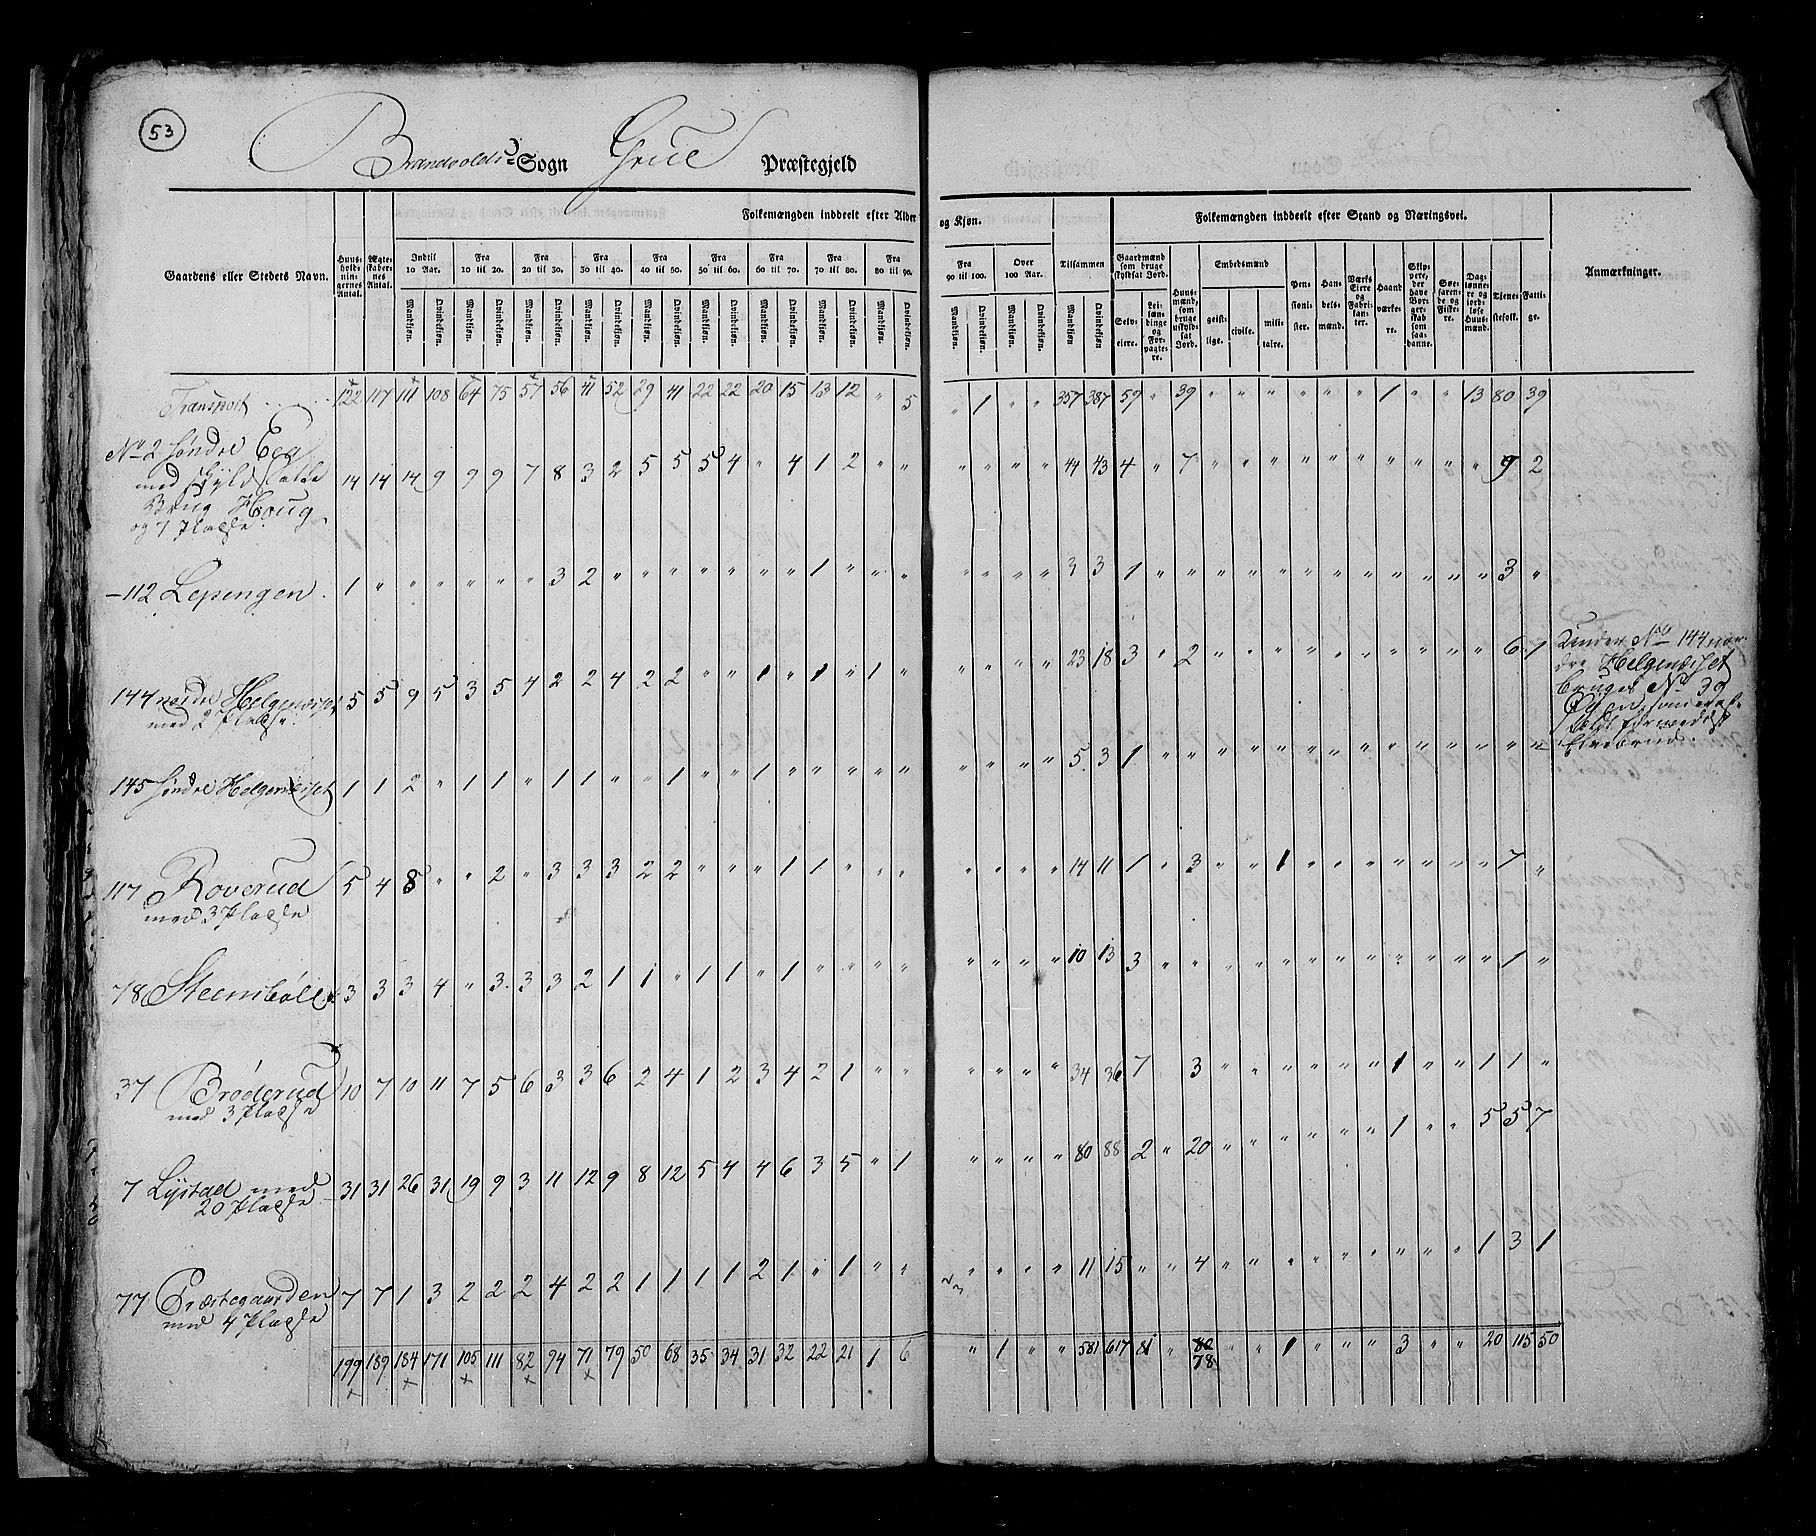 53
Brandvolds Sogn Grue Præstegjeld
Gaardens eller Stedets Navn. | Huusholdningernes Antal. | Ægteskabernes Antal. | Folkemængden inddeelt efter Alder og Kjøn. | Tilsammen | Folkemængden inddeelt efter Stand og Næringsvei. | Anmærkninger.
Indtil 10 Aar. | Fra 10 til 20. | Fra 20 til 30. | Fra 30 til 40. | Fra 40 til 50. | Fra 50 til 60. | Fra 60 til 70. | Fra 70 til 80. | Fra 80 til 90. | Fra 90 til 100. | Over 100 Aar. | Gaardmænd som bruge skyldsat Jord. | Huusmænd, som bruge uskyldsat Jord. | Embedsmænd | Pensionister. | Handelsmænd. | Værks Eiere og Fabrikanter. | Haandværkere. | Skippere, der have Borgerskab som saadanne. | Søefarende og Fiskere. | Daglønnere og jordløse Huusmænd. | Tjenestefolk. | Fattige.
Mandkjøn. | Qvindekjøn. | Selveiere. | Leilændinge og Forpagtere. | geistlige. | civile. | militaire.
Transport 122 117 111 108 64 75 57 56 41 52 29 41 22 22 20 15 13 12 " 5 " 1 " " 357 387 59 " 39 " " " " " " 1 " " 13 80 39
No 2 søndre Ega
med skyldsatte 14 14 14 9 9 9 7 8 3 2 5 5 5 4 " 4 1 2 " " " " " " 44 43 4 " 7 " " " " " " " " " " 9 2
Brug Houg
og 7 Pladse.
– 112 Lepengen . 1 " " " " " " 3 2 " " " " " " " 1 " " " " " " " 3 3 1 " " " " " " " " " " " " 3 "
144 nordre Helgenæset 5 5 9 5 3 5 4 2 2 4 2 2 " " 1 " 1 " 1 " " " " " 23 18 3 " 2 " " " " " " " " " " 6 1
med 2 Pladse.
Under No 144 nor-
dre Helgenæset
bruges No 39
145 søndre Helgenæset 1 1 2 " 1 1 " 1 1 " " 1 " " 1 " " " " " " " " " 5 3 1 " " " " " " " " " " " " " "
117 Roverud 5 4 8 " " 2 " 3 3 3 2 2 " " " 1 1 " " " " " " " 14 11 1 " 3 " " 1 " " " " " " " 7 "
med 3 Pladse
78 Steensbøle 3 3 3 4 " 3 3 3 2 1 1 " 1 1 " 1 " " " " " " " " 10 13 3 " " " " " " " " " " " " 1 "
37 Brøderud 10 7 10 11 7 5 6 3 3 6 2 4 1 2 3 4 2 1 " " " " " " 34 36 7 3 " " " " " " 1 " " 1 1 "
med 3 Pladse
7 Lystad med 31 31 26 31 19 9 3 11 12 9 8 12 5 4 4 6 3 5 " 1 " " " " 80 88 2 " 20 " " " " " " 1 " " 5 5 7
20 Pladse
77 Præstegaarden 7 7 1 3 2 2 2 4 2 2 1 1 1 1 2 1 " 1 " " " " " " 11 15 " " 4 " " " " " " " " " 1 3 1
med 4 Pladse
199 189 184 171 105 111 82 94 71 79 50 68 35 34 31 32 22 21 1 6 " 1 " " 581 617 81 " 80 " " 1 " " " 3 " " 20 115 50
78